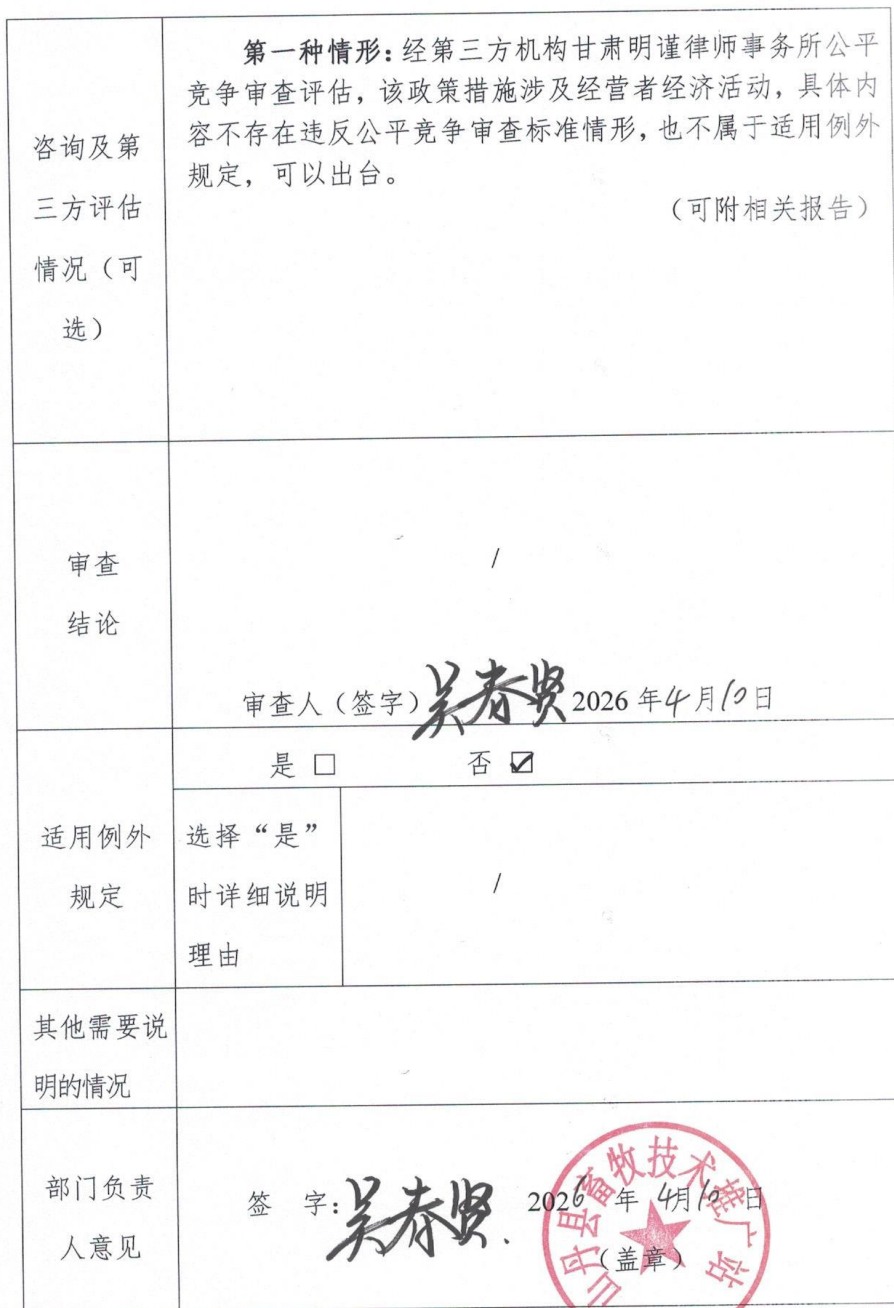 咨询及第
三方评估
情况（可
选）
第一种情形：经第三方机构甘肃明谨律师事务所公平
竞争审查评估，该政策措施涉及经营者经济活动，具体内
容不存在违反公平竞争审查标准情形，也不属于适用例外
规定，可以出台。
（可附相关报告）
审查
结论
/
审查人（签字）吴春贤 2026年4月10日
适用例外
规定
是 □ 否 ☑
选择“是”
时详细说明
理由
/
其他需要说
明的情况
部门负责
人意见
签 字：吴春贤. 2026年4月10日
（盖章）
山丹县畜牧技术推广站